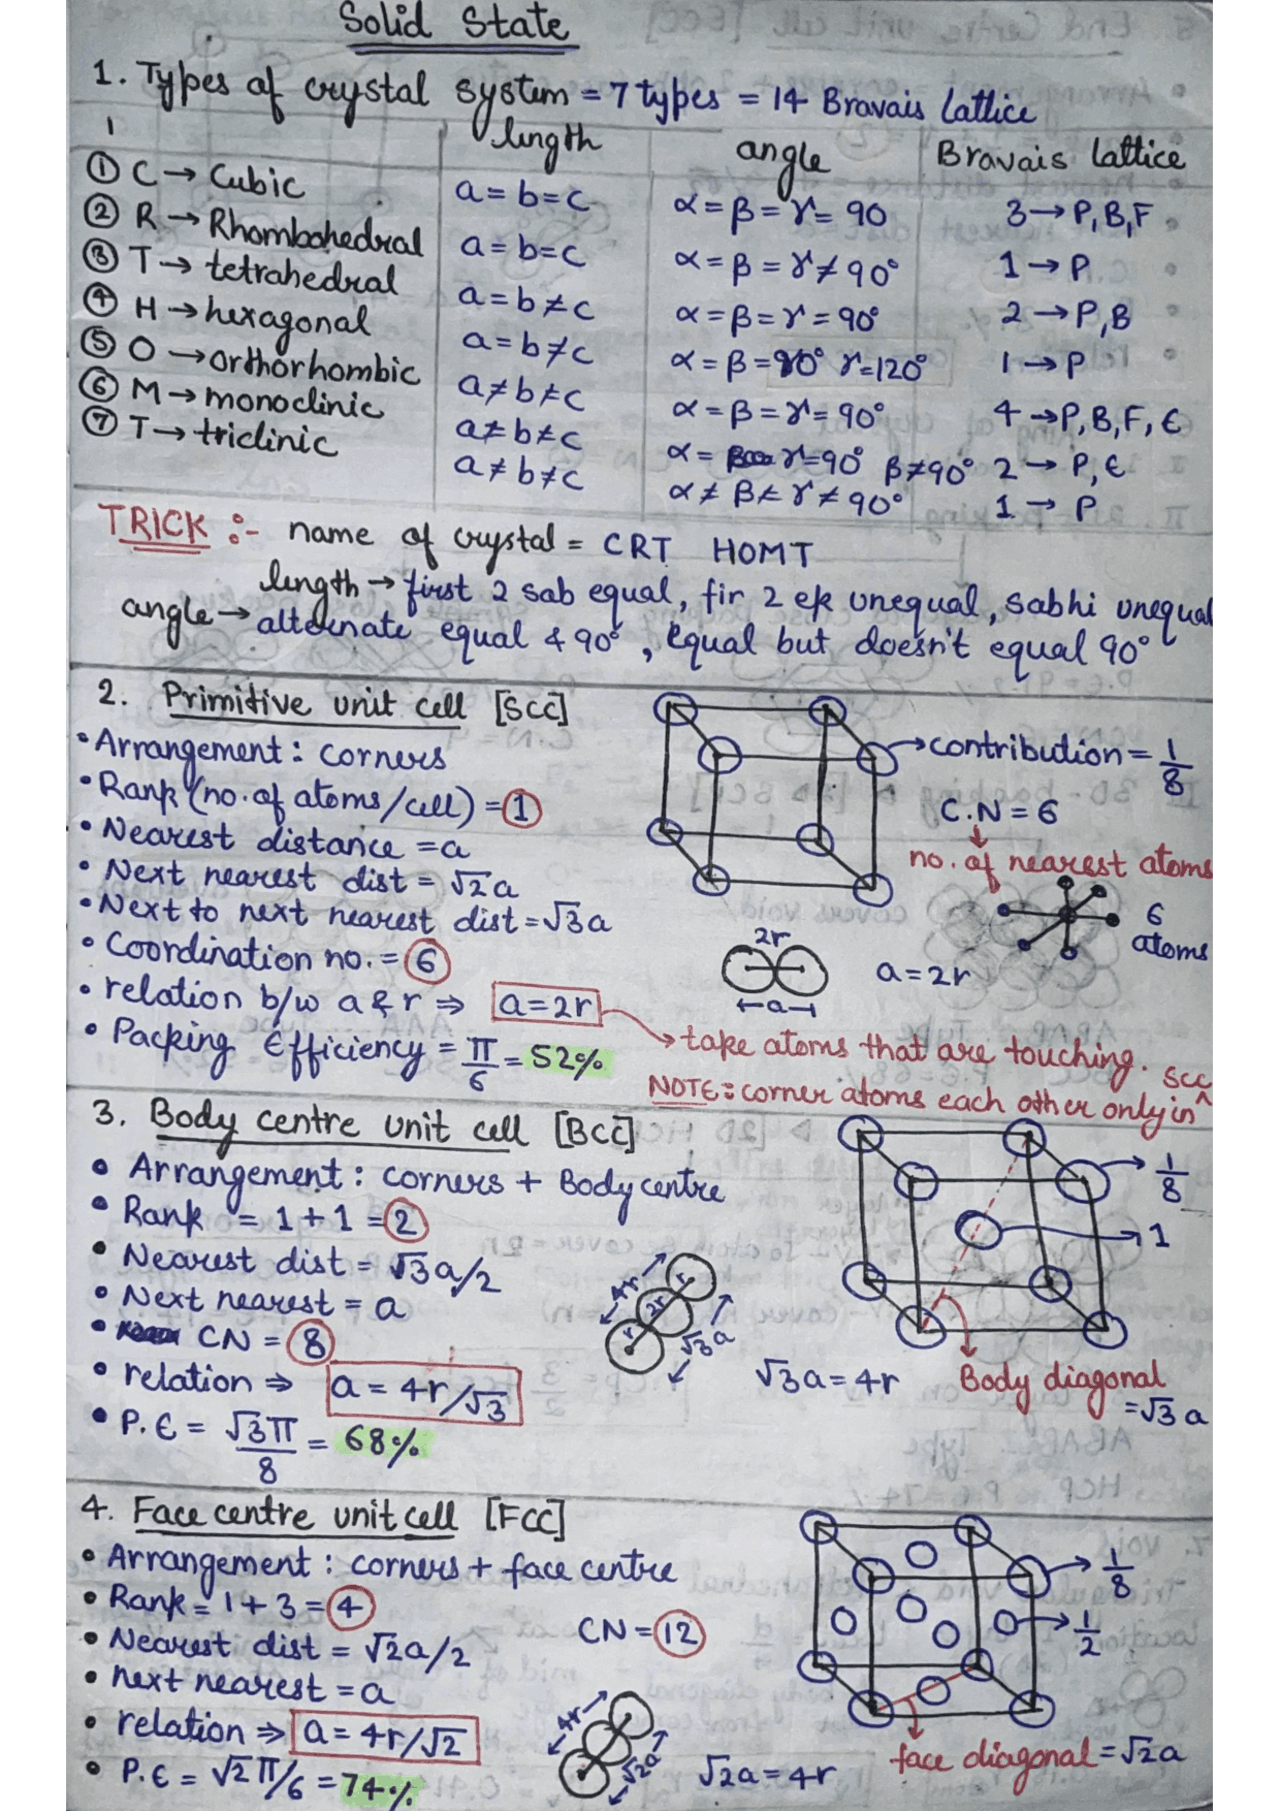 Solid State
1. Types of crystal system = 7 types = 14 Bravais Lattice
length angle Bravais Lattice
① C → Cubic a = b = c α = β = γ = 90 3 → P, B, F
② R → Rhombohedral a = b = c α = β = γ ≠ 90° 1 → P
③ T → tetrahedral a = b ≠ c α = β = γ = 90° 2 → P, B
④ H → hexagonal a = b ≠ c α = β = 90° γ = 120° 1 → P
⑤ O → orthorhombic a ≠ b ≠ c α = β = γ = 90° 4 → P, B, F, E
⑥ M → monoclinic a ≠ b ≠ c α = γ = 90° β ≠ 90° 2 → P, E
⑦ T → triclinic a ≠ b ≠ c α ≠ β ≠ γ ≠ 90° 1 → P
TRICK :- name of crystal = CRT HOMT
length → first 2 sab equal, fir 2 ek unequal, sabhi unequal
angle → alternate equal & 90°, equal but doesn't equal 90°
2. Primitive unit cell [SCC]
• Arrangement : corners
• Rank (no. of atoms/cell) = 1
• Nearest distance = a
• Next nearest dist = √2 a
• Next to next nearest dist = √3 a
• Coordination no. = 6
• relation b/w a & r ⇒ a = 2r
• Packing Efficiency = π/6 = 52%
→ contribution = 1/8
C.N = 6
no. of nearest atoms
6 atoms
2r
a
a = 2r
→ take atoms that are touching.
NOTE : corner atoms each other only in ^ SCC
3. Body centre unit cell [BCC]
• Arrangement : corners + Body centre
• Rank = 1 + 1 = 2
• Nearest dist = √3 a/2
• Next nearest = a
• CN = 8
• relation ⇒ a = 4r/√3
• P.E = √3π/8 = 68%
1/8
1
4r
r
2r
r
√3 a
√3 a = 4r
Body diagonal
= √3 a
4. Face centre unit cell [FCC]
• Arrangement : corners + face centre
• Rank = 1 + 3 = 4
CN = 12
• Nearest dist = √2 a/2
• next nearest = a
• relation ⇒ a = 4r/√2
• P.E = √2 π/6 = 74%
1/8
1/2
4r
√2a
√2a = 4r
face diagonal = √2a